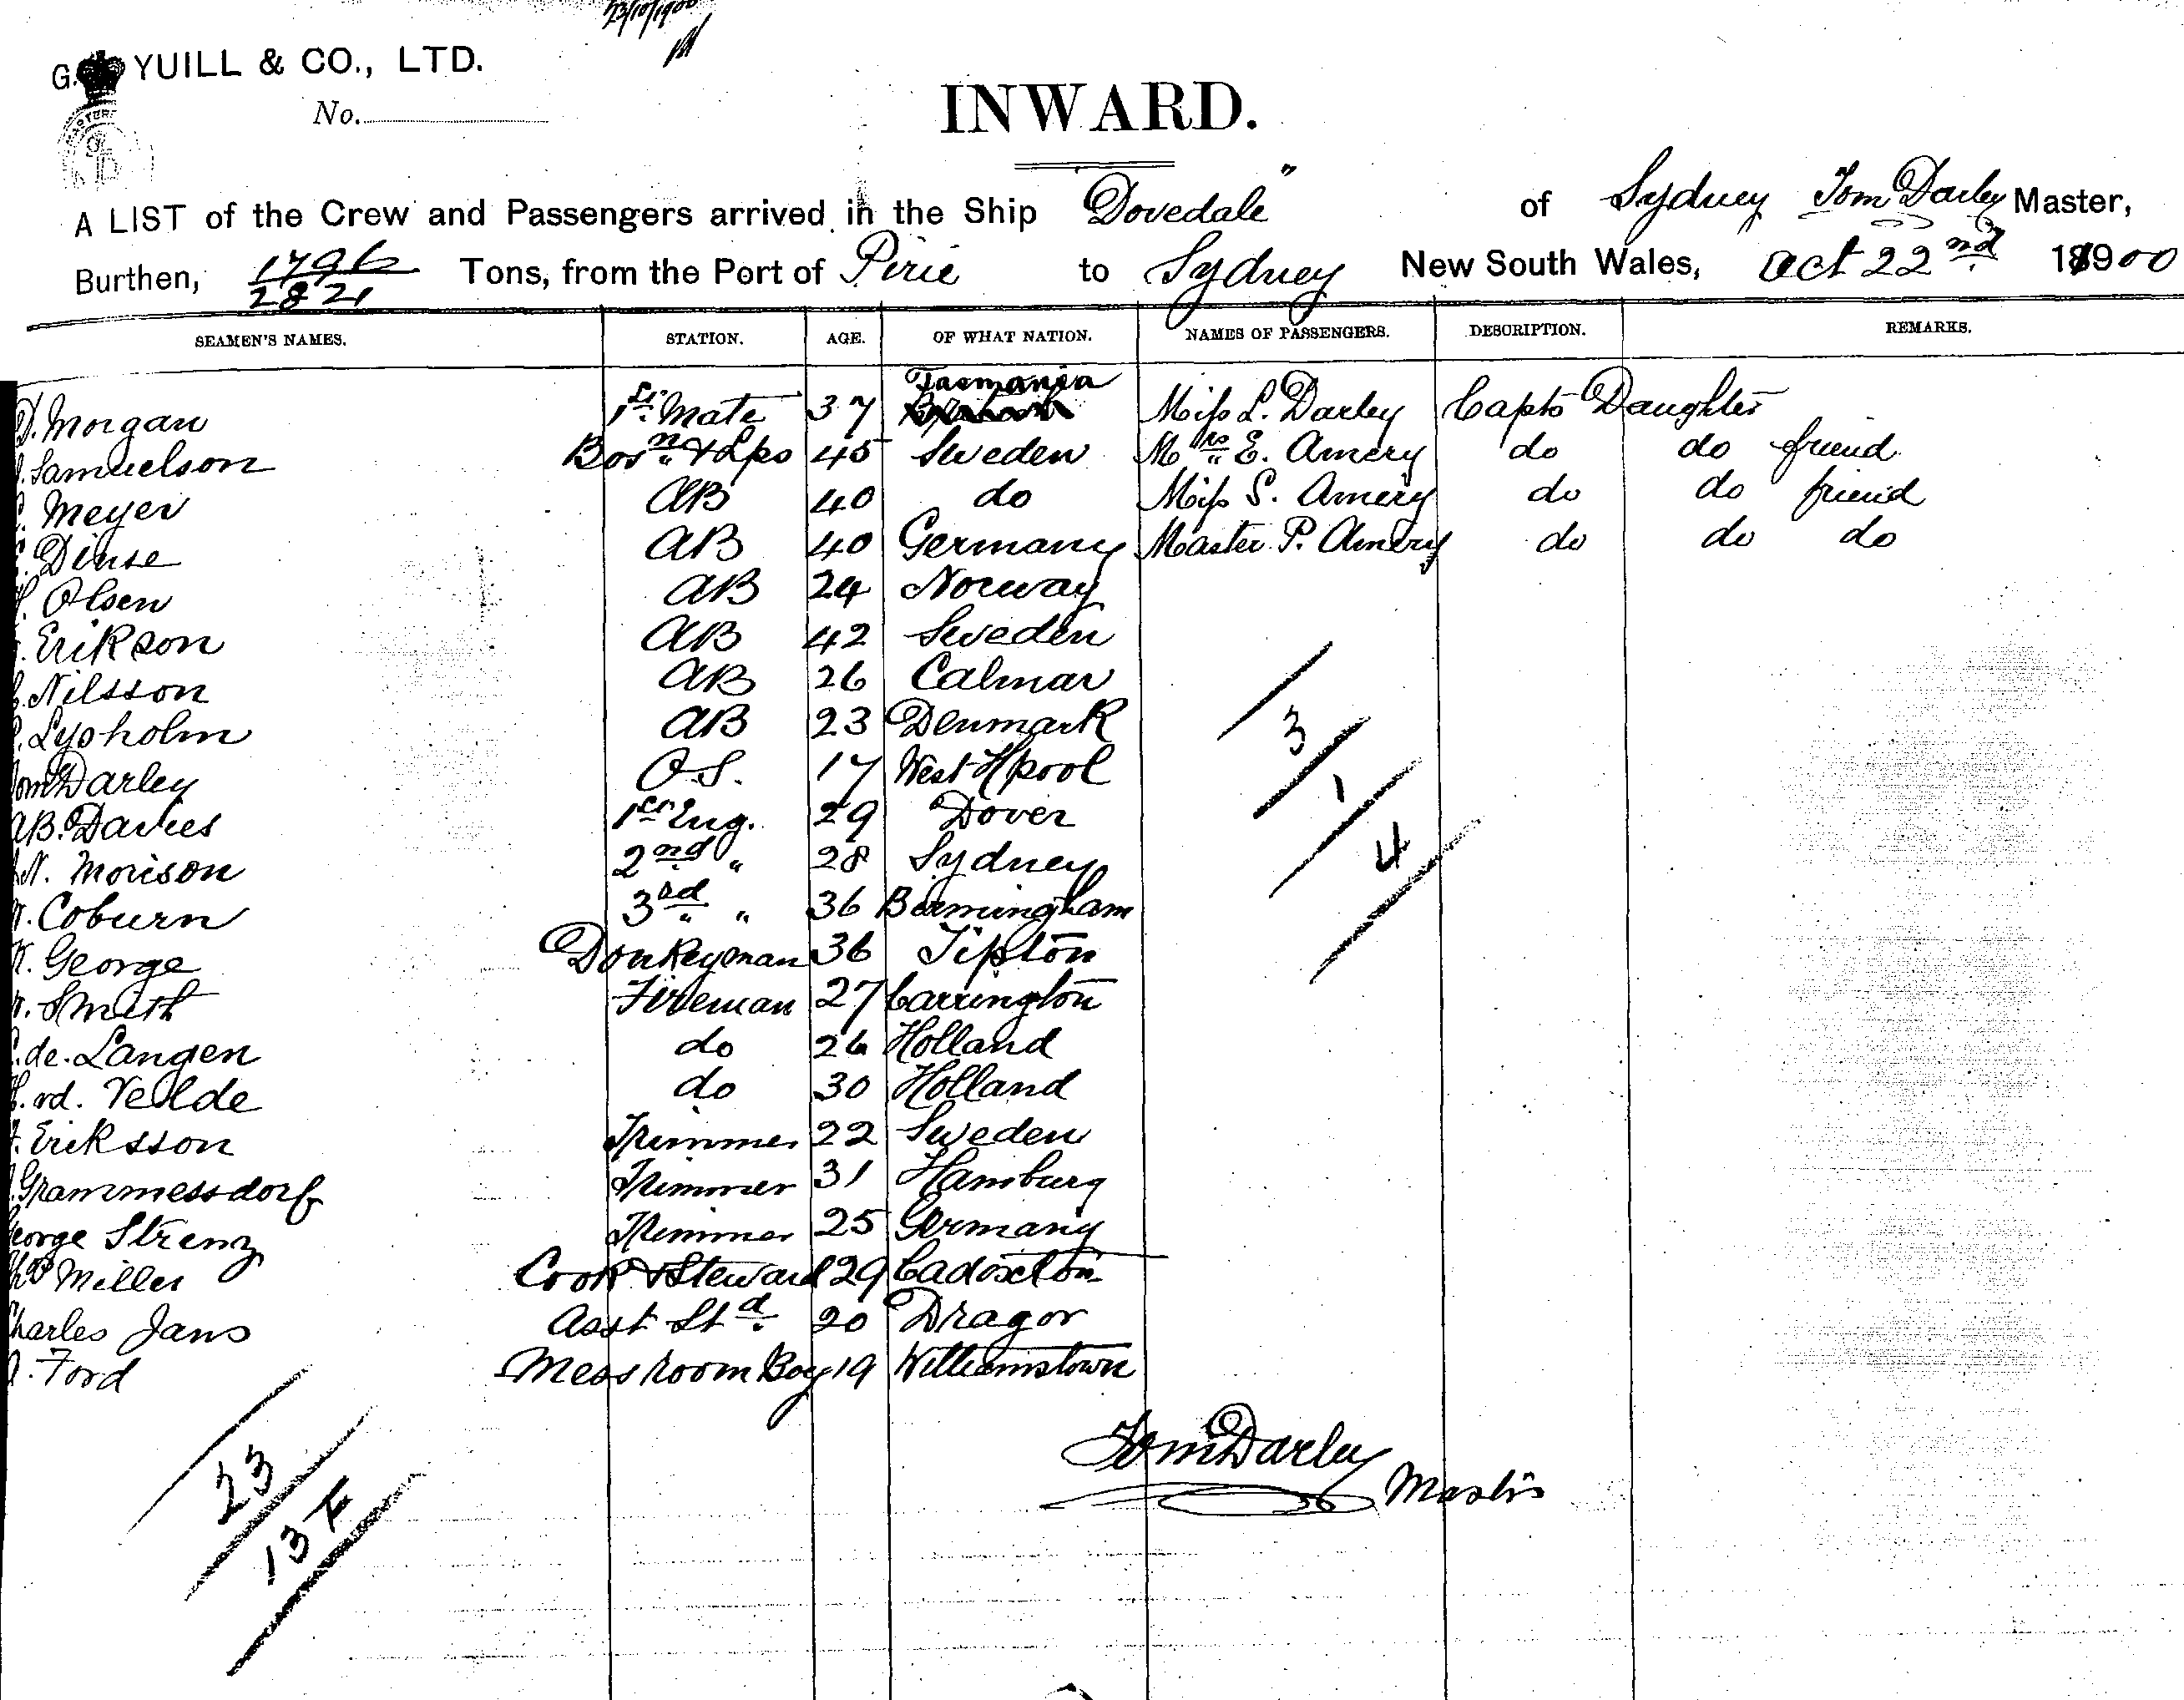 23/10/1900
G. YUILL & CO., LTD.
No.
INWARD.
A LIST of the Crew and Passengers arrived in the Ship "Dovedale" of Sydney Tom Darley Master,
Burthen, 1796 Tons, from the Port of Pirie to Sydney New South Wales, Oct 22nd 1900
2821
SEAMEN'S NAMES. STATION. AGE. OF WHAT NATION. NAMES OF PASSENGERS. DESCRIPTION. REMARKS.
D. Morgan 1st Mate 37 Tasmania Miss L. Darley Capts Daughter
Samuelson Bosn & Lps 45 Sweden Mrs E. Amery do do friend
Meyer AB 40 do Miss S. Amery do do friend
Dinse AB 40 Germany Master P. Amery do do do
Olsen AB 24 Norway
Erikson AB 42 Sweden
Nilsson AB 26 Calmar
Lysholm AB 23 Denmark
Tom Darley O.S. 17 West Hpool
AB. Davies 1st Eng. 29 Dover
N. Morison 2nd " 28 Sydney
Coburn 3rd " 36 Birmingham
George Donkeyman 36 Tipton
Smith Fireman 27 Carrington
de. Langen do 26 Holland
vd. Velde do 30 Holland
Eriksson Trimmer 22 Sweden
Grammessdorf Trimmer 31 Hamburg
George Strenz Trimmer 25 Germany
Miller Cook & Steward 29 Cadoxton
Charles Jans Asst Std 20 Dragor
Ford Mess room Boy 19 Williamstown
3
1
4
Tom Darley
Master
23
13